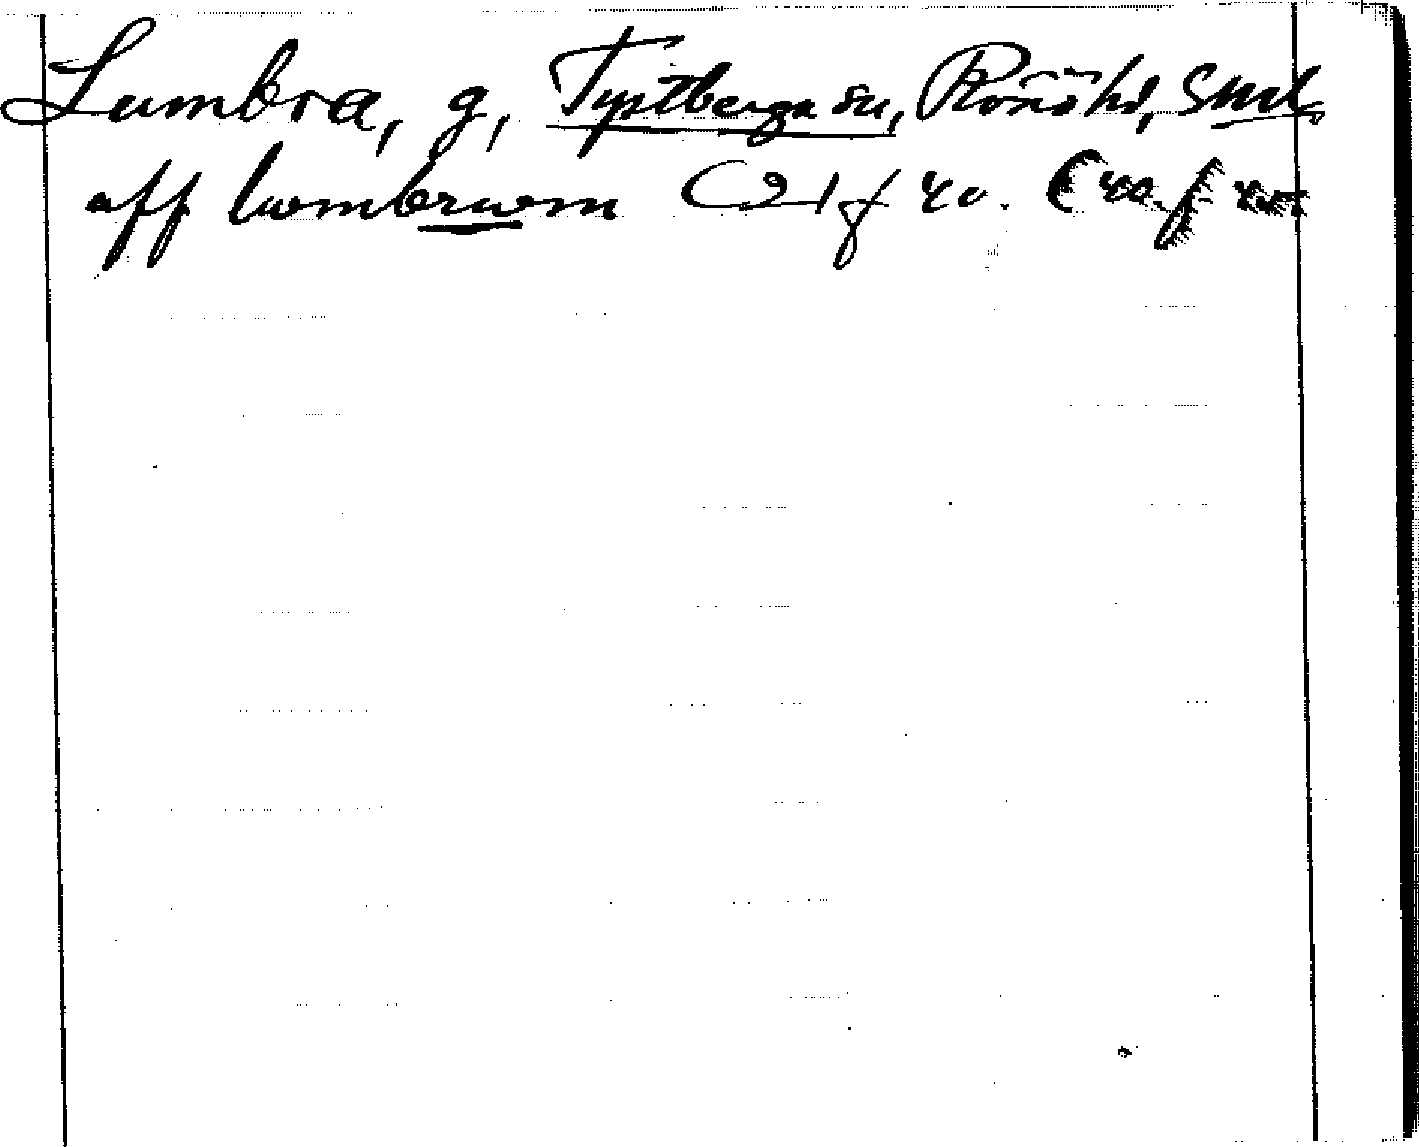 Lumbra, g, Tystberga sn, Rönö hd, Sml
aff lwmbrwm C 21 f 40.